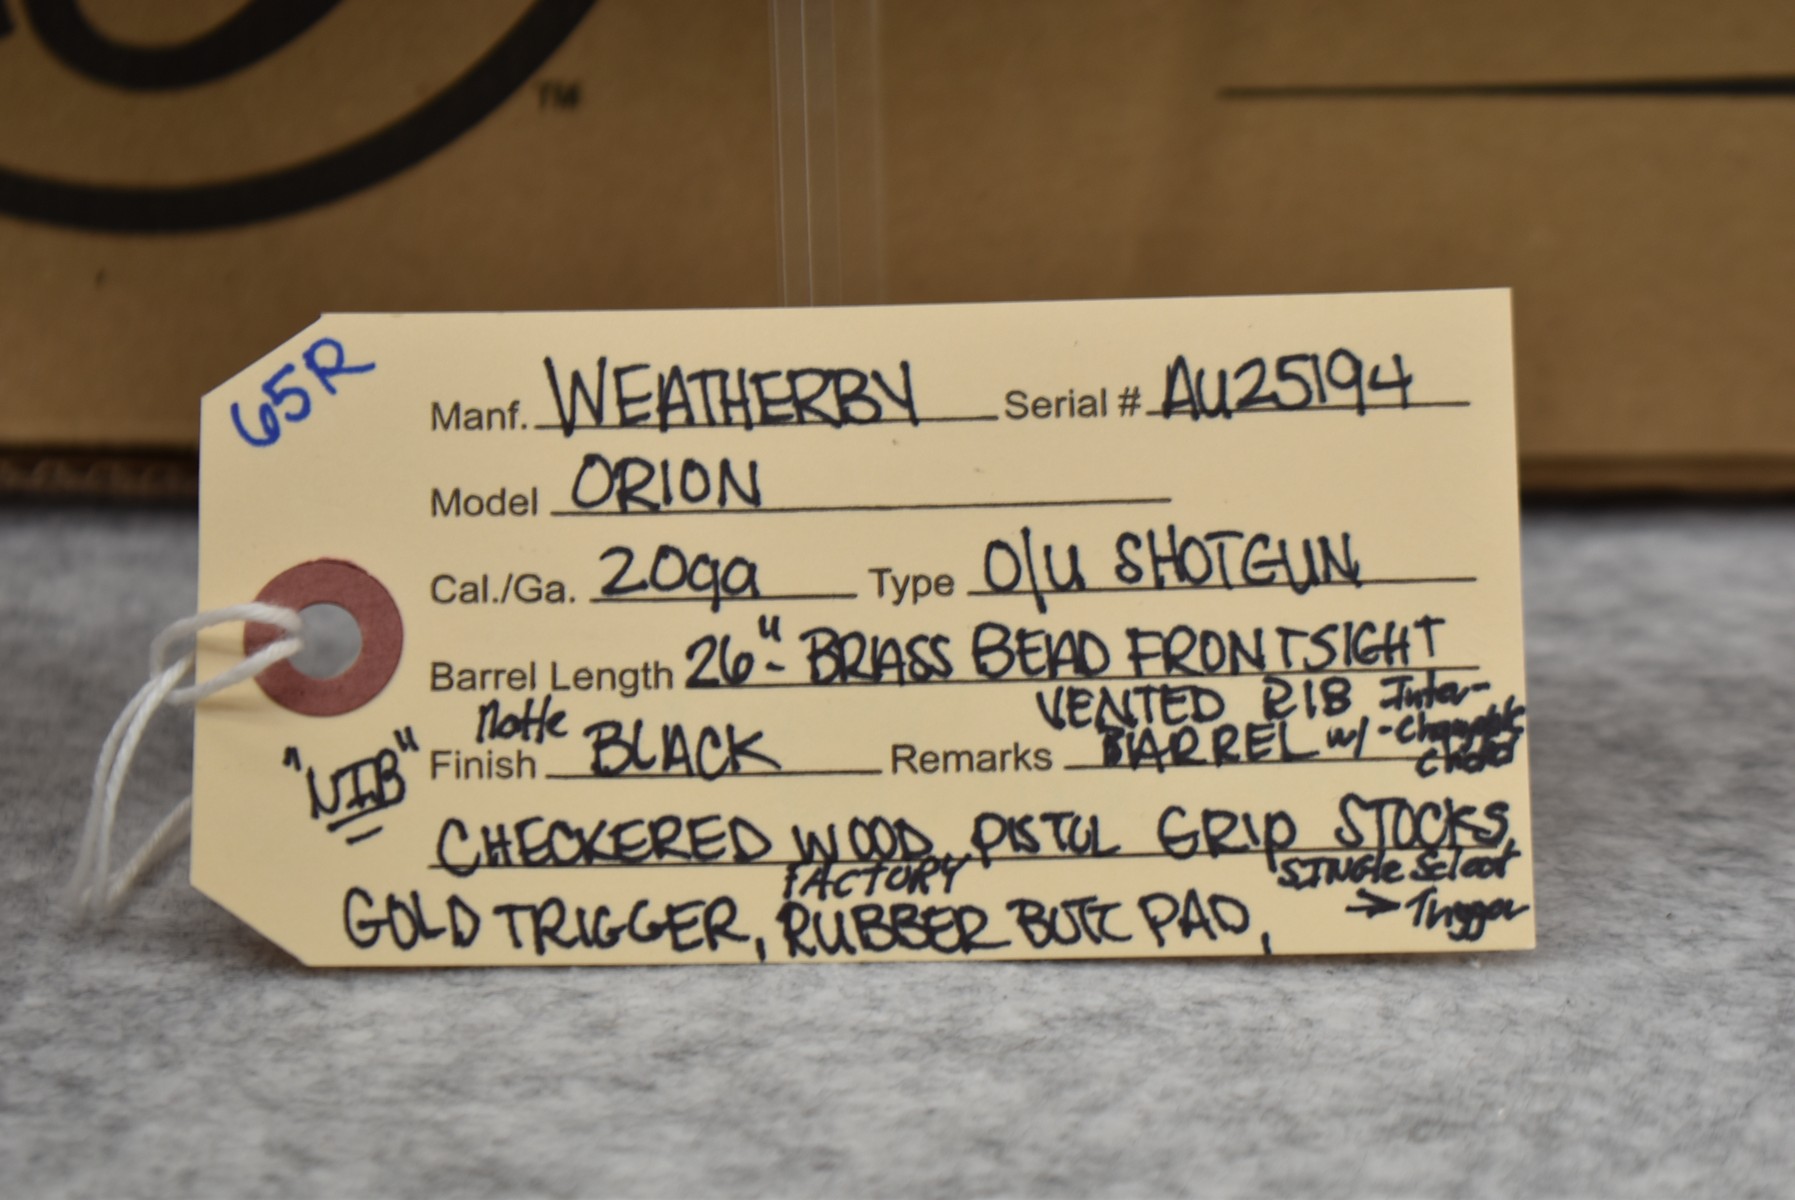 TM
65R
Manf. WEATHERBY Serial # AU25194
Model ORION
Cal./Ga. 20ga Type O/U SHOTGUN
Barrel Length 26"- BRASS BEAD FRONTSIGHT
Matte VENTED RIB Inter-
Finish BLACK Remarks BARREL w/ -Changable
"NIB"
CHECKERED WOOD PISTOL GRIP STOCKS,
FACTORY SINGLE Select
GOLD TRIGGER, RUBBER BUTT PAD, → Trigger